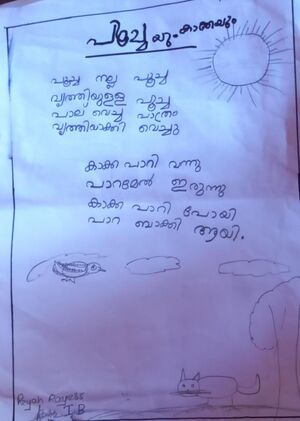 പൂച്ചയും കാക്കയും
പൂച്ച നല്ല പൂച്ച
വൃത്തിയുള്ള പൂച്ച
പാല് വെച്ച പാത്രം
വൃത്തിയാക്കി വെച്ചു
കാക്ക പാറി വന്നു
പാറമേൽ ഇരുന്നു
കാക്ക പാറി പോയി
പാറ ബാക്കി ആയി.
Class I B